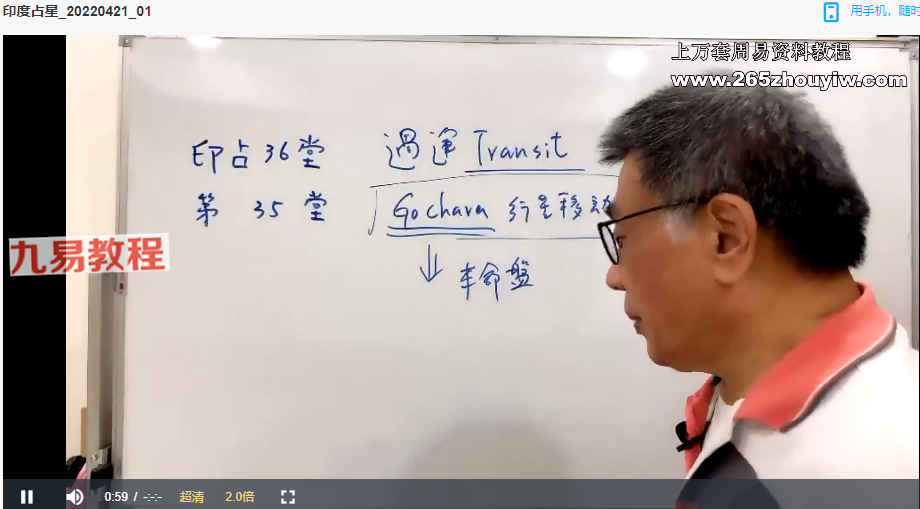 印度占星_20220421_01
用手机，随时
上万套周易资料教程
www.265zhouyiw.com
印占36堂
第 35 堂
過運 Transit
Gochara 行星移
↓ 本命盤
九易教程
0:59 / -:-:- 超清 2.0倍